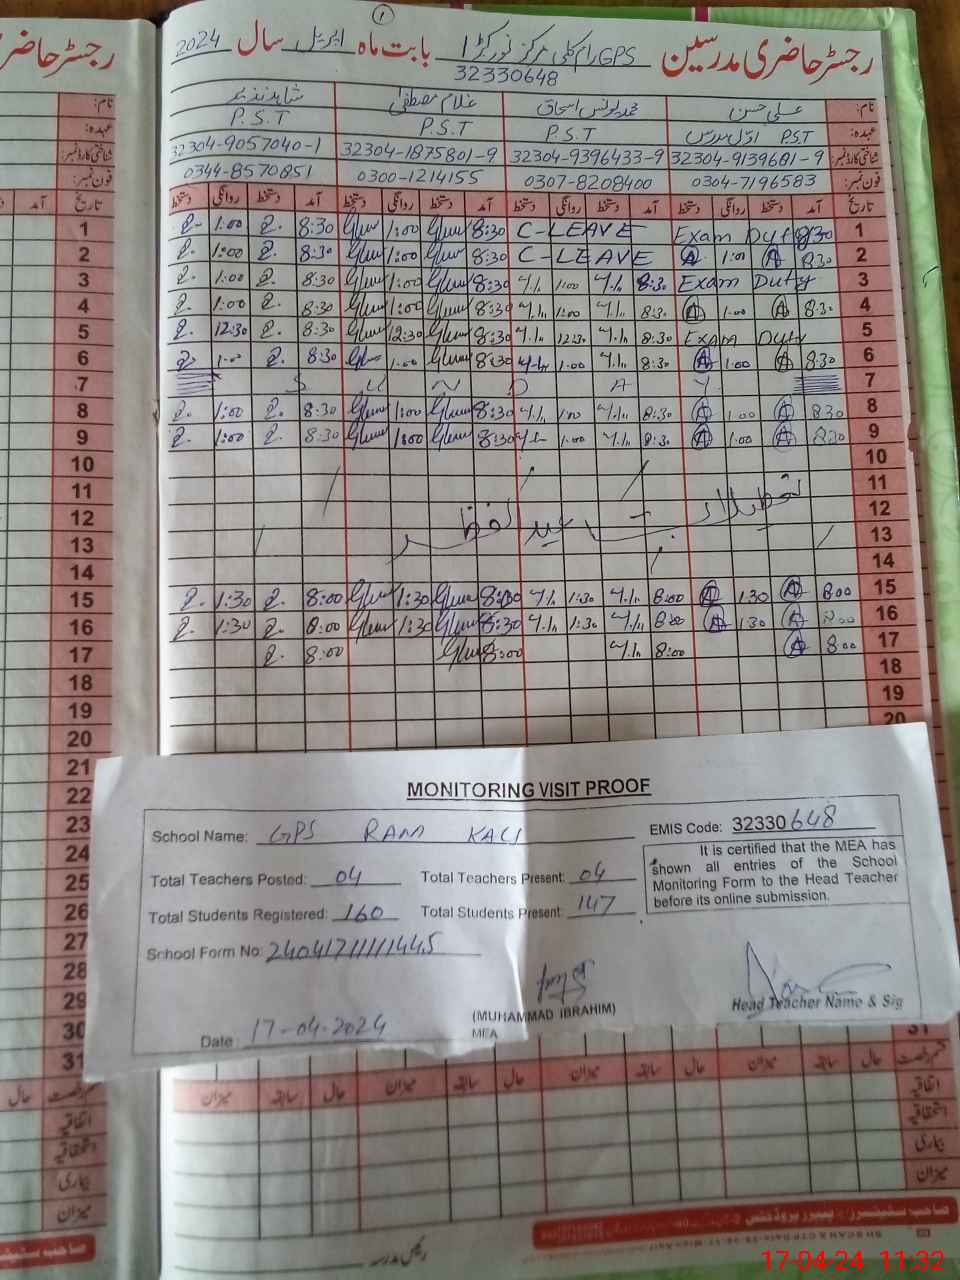 رجسٹر حاضری مدرسین GPS رام کلی مرکز نور کڑا بابت ماہ اپریل سال 2024
32330648
نام: علی حسن محمد یونس اسحاق غلام مصطفیٰ شاہد نذیر
عہدہ: P.S.T اوّل مدرس P.S.T P.S.T P.S.T
شناختی کارڈ نمبر: 32304-9139681-9 32304-9396433-9 32304-1875801-9 32304-9057040-1
فون نمبر: 0304-7196583 0307-8208400 0300-1214155 0344-8570851
تاریخ آمد دستخط روانگی دستخط آمد دستخط روانگی دستخط آمد دستخط روانگی دستخط آمد دستخط روانگی دستخط
1 Exam Duty 8:30 C-LEAVE 8:30 1:00 8:30 1:00
2 8:30 1:00 C-LEAVE 8:30 1:00 8:30 1:00
3 Exam Duty 8:30 1:00 8:30 1:00 8:30 1:00
4 8:30 1:00 8:30 1:00 8:30 1:00 8:30 1:00
5 Exam Duty 8:30 12:30 8:30 12:30 8:30 12:30
6 8:30 1:00 8:30 1:00 8:30 1:00 8:30 1:00
7 S U N D A Y
8 8:30 1:00 8:30 1:00 8:30 1:00 8:30 1:00
9 8:30 1:00 8:30 1:00 8:30 1:00 8:30 1:00
10
11
12 تعطیلات عید الفطر
13
14
15 8:00 1:30 8:00 1:30 8:30 1:30 8:00 1:30
16 8:00 1:30 8:00 1:30 8:30 1:30 8:00 1:30
17 8:00 8:00 8:00 8:00
18
19
20
21
22
23
24
25
26
27
28
29
30
31
MONITORING VISIT PROOF
School Name: GPS RAM KALI EMIS Code: 32330648
Total Teachers Posted: 04 Total Teachers Present: 04
Total Students Registered: 160 Total Students Present: 147
School Form No: 24041711111445
It is certified that the MEA has
shown all entries of the School
Monitoring Form to the Head Teacher
before its online submission.
Date: 17-04-2024
(MUHAMMAD IBRAHIM)
MEA
Head Teacher Name & Sig
قسم رخصت حال سابقہ میزان حال سابقہ میزان حال سابقہ میزان
اتفاقیہ
استحقاقیہ
بیماری
میزان
رئیس مدرسہ
17-04-24 11:32